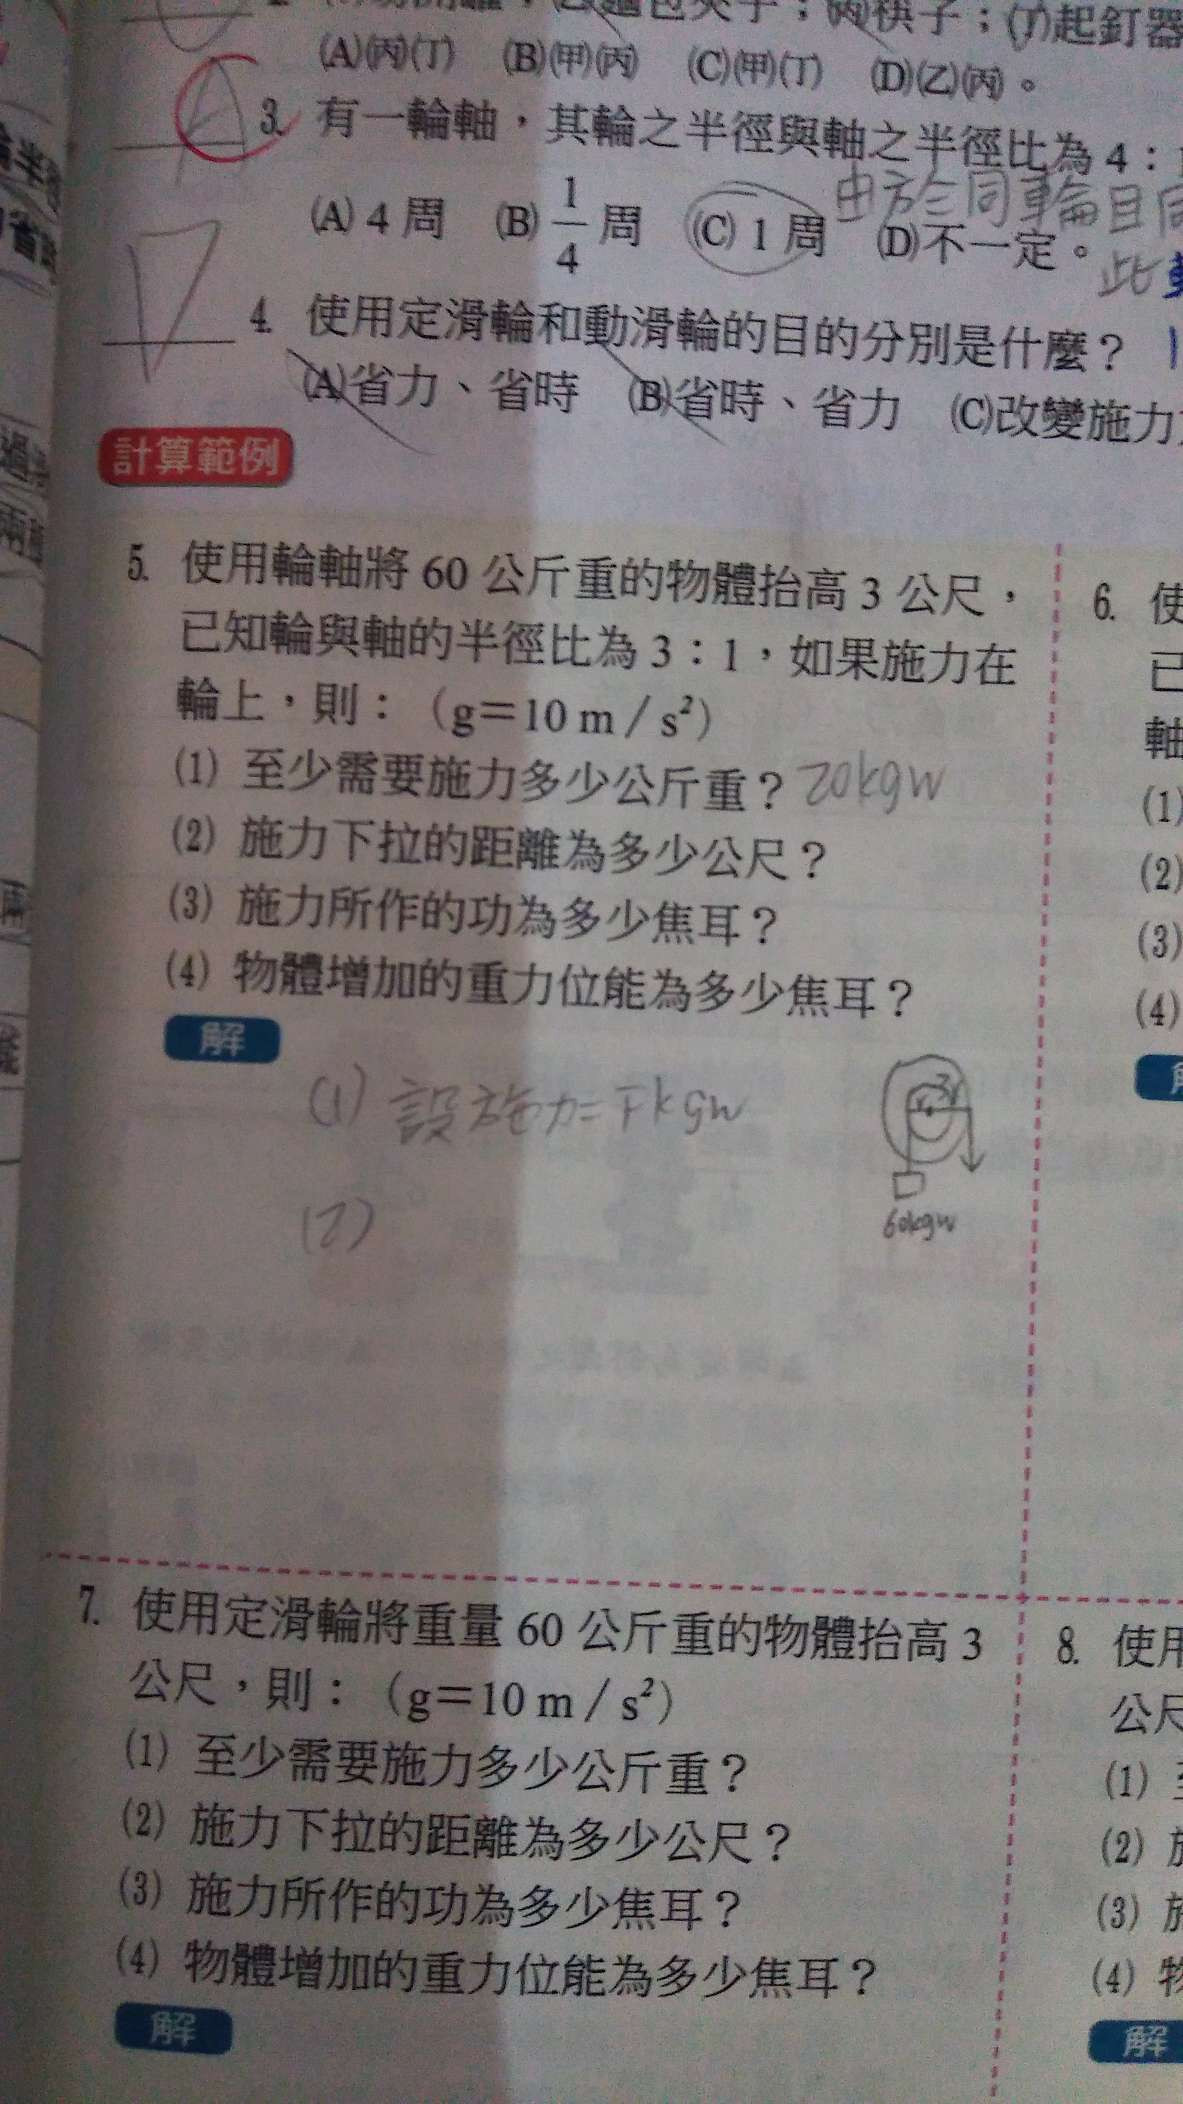 麵包夾子；(丙)筷子；(丁)起釘器
(A)(丙)(丁) (B)(甲)(丙) (C)(甲)(丁) (D)(乙)(丙)。
A
3. 有一輪軸，其輪之半徑與軸之半徑比為 4：1
由於同輪且同
(A) 4 周 (B) 1/4 周 (C) 1 周 (D)不一定。
此
D
4. 使用定滑輪和動滑輪的目的分別是什麼？
(A)省力、省時 (B)省時、省力 (C)改變施力
計算範例
5. 使用輪軸將 60 公斤重的物體抬高 3 公尺，
已知輪與軸的半徑比為 3：1，如果施力在
輪上，則：（g＝10 m／s²）
(1) 至少需要施力多少公斤重？ 20kgw
(2) 施力下拉的距離為多少公尺？
(3) 施力所作的功為多少焦耳？
(4) 物體增加的重力位能為多少焦耳？
解
(1) 設施力=Fkgw
r 3r
60kgw
(2)
6. 使
已
軸
(1)
(2)
(3)
(4)
7. 使用定滑輪將重量 60 公斤重的物體抬高 3
公尺，則：（g＝10 m／s²）
(1) 至少需要施力多少公斤重？
(2) 施力下拉的距離為多少公尺？
(3) 施力所作的功為多少焦耳？
(4) 物體增加的重力位能為多少焦耳？
解
8. 使用
公尺
(1) 至
(2) 施
(3) 施
(4) 物
解